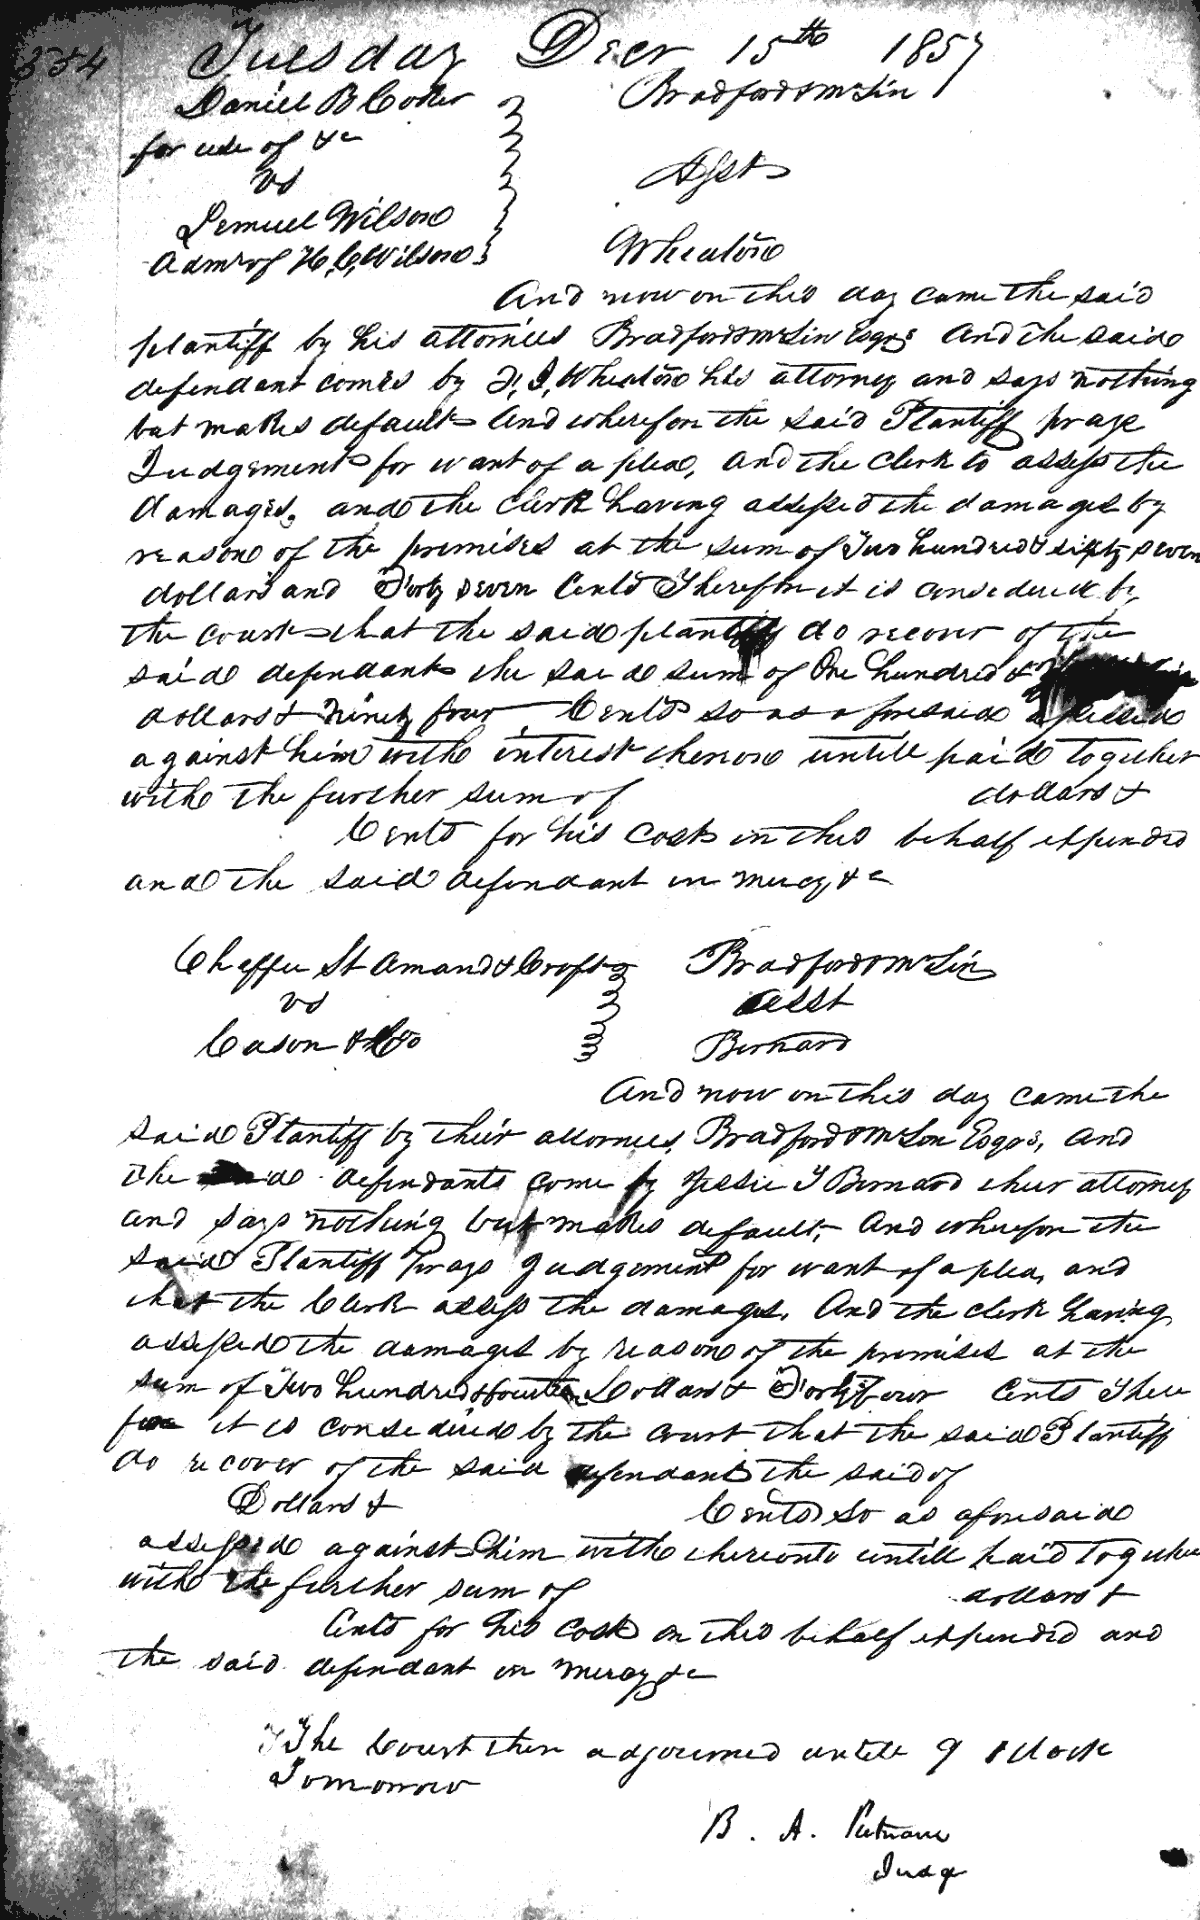 354 Tuesday Decr 15th 1857
Daniel B Coker Bradford & McLin
for use of &c
vs Asst
Lemuel Wilson
Admr of H. C. Wilson Wheaton
And now on this day came the said
plantiff by his attornies Bradford & McLin Esqrs And the said
defendant comes by F, I, Wheaton his attorney and says nothing
but makes default And wherefore the said Plantiff prays
Judgement for want of a plea, and the Clerk to assess the
damages. and the Clerk having assessed the damages by
reason of the premises at the sum of Two hundred & sixty seven
dollars and Forty seven Cents Therefore it is considered by
the court that the said plantiff do recover of the
said defendant the said sum of One hundred &
dollars & Ninety four Cents so as aforesaid assessed
against him with interest thereon untill paid together
with the further sum of dollars &
Cents for his Costs in this behalf expended
and the said defendant in mercy &c
Chaffer St Amand & Croft Bradford & McLin
vs Asst
Cason & Co Bernard
And now on this day came the
said Plantiff by their attornies, Bradford & McLin Esqrs, and
the said defendants come by Jessie T Bernard their attorney
and says nothing but makes default, And wherefore the
said Plantiff prays Judgement for want of a plea, and
that the Clerk assess the damages. And the clerk having
assessed the damages by reason of the premises at the
sum of Two hundred & fourteen Dollars & Forty four Cents There
fore it is considered by the court that the said Plantiff
do recover of the said defendants the said of
Dollars & Cents so as aforesaid
assessed against him with thereonto untill paid Together
with the further sum of dollars &
Cents for his Cost on this behalf expended and
the said defendant in mercy &c
The Court then adjourned untill 9 oclock
Tomorrow
B. A. Putnam
Judge